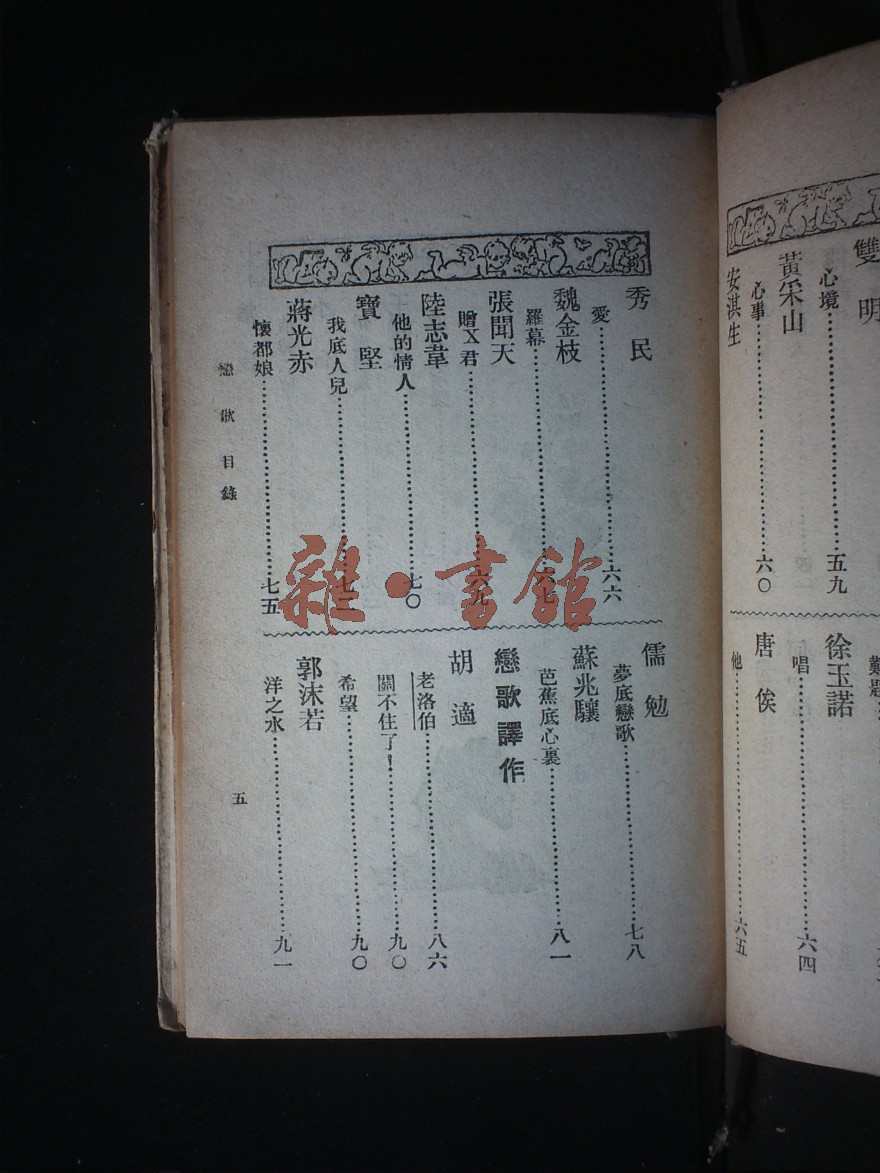 雙明
心境……五九
黃采山
心事……六〇
安淇生
徐玉諾
唱……六四
唐俟
他……六五
秀民
愛……六六
魏金枝
羅幕……六七
張聞天
贈X君……六九
陸志韋
他的情人……七〇
寶堅
我底人兒……七二
蔣光赤
懷都娘……七五
儒勉
夢底戀歌……七八
蘇兆驤
芭蕉底心裏……八一
戀歌譯作
胡適
老洛伯……八六
關不住了！……九〇
希望……九〇
郭沫若
洋之水……九一
戀歌目錄
五
雜·書館